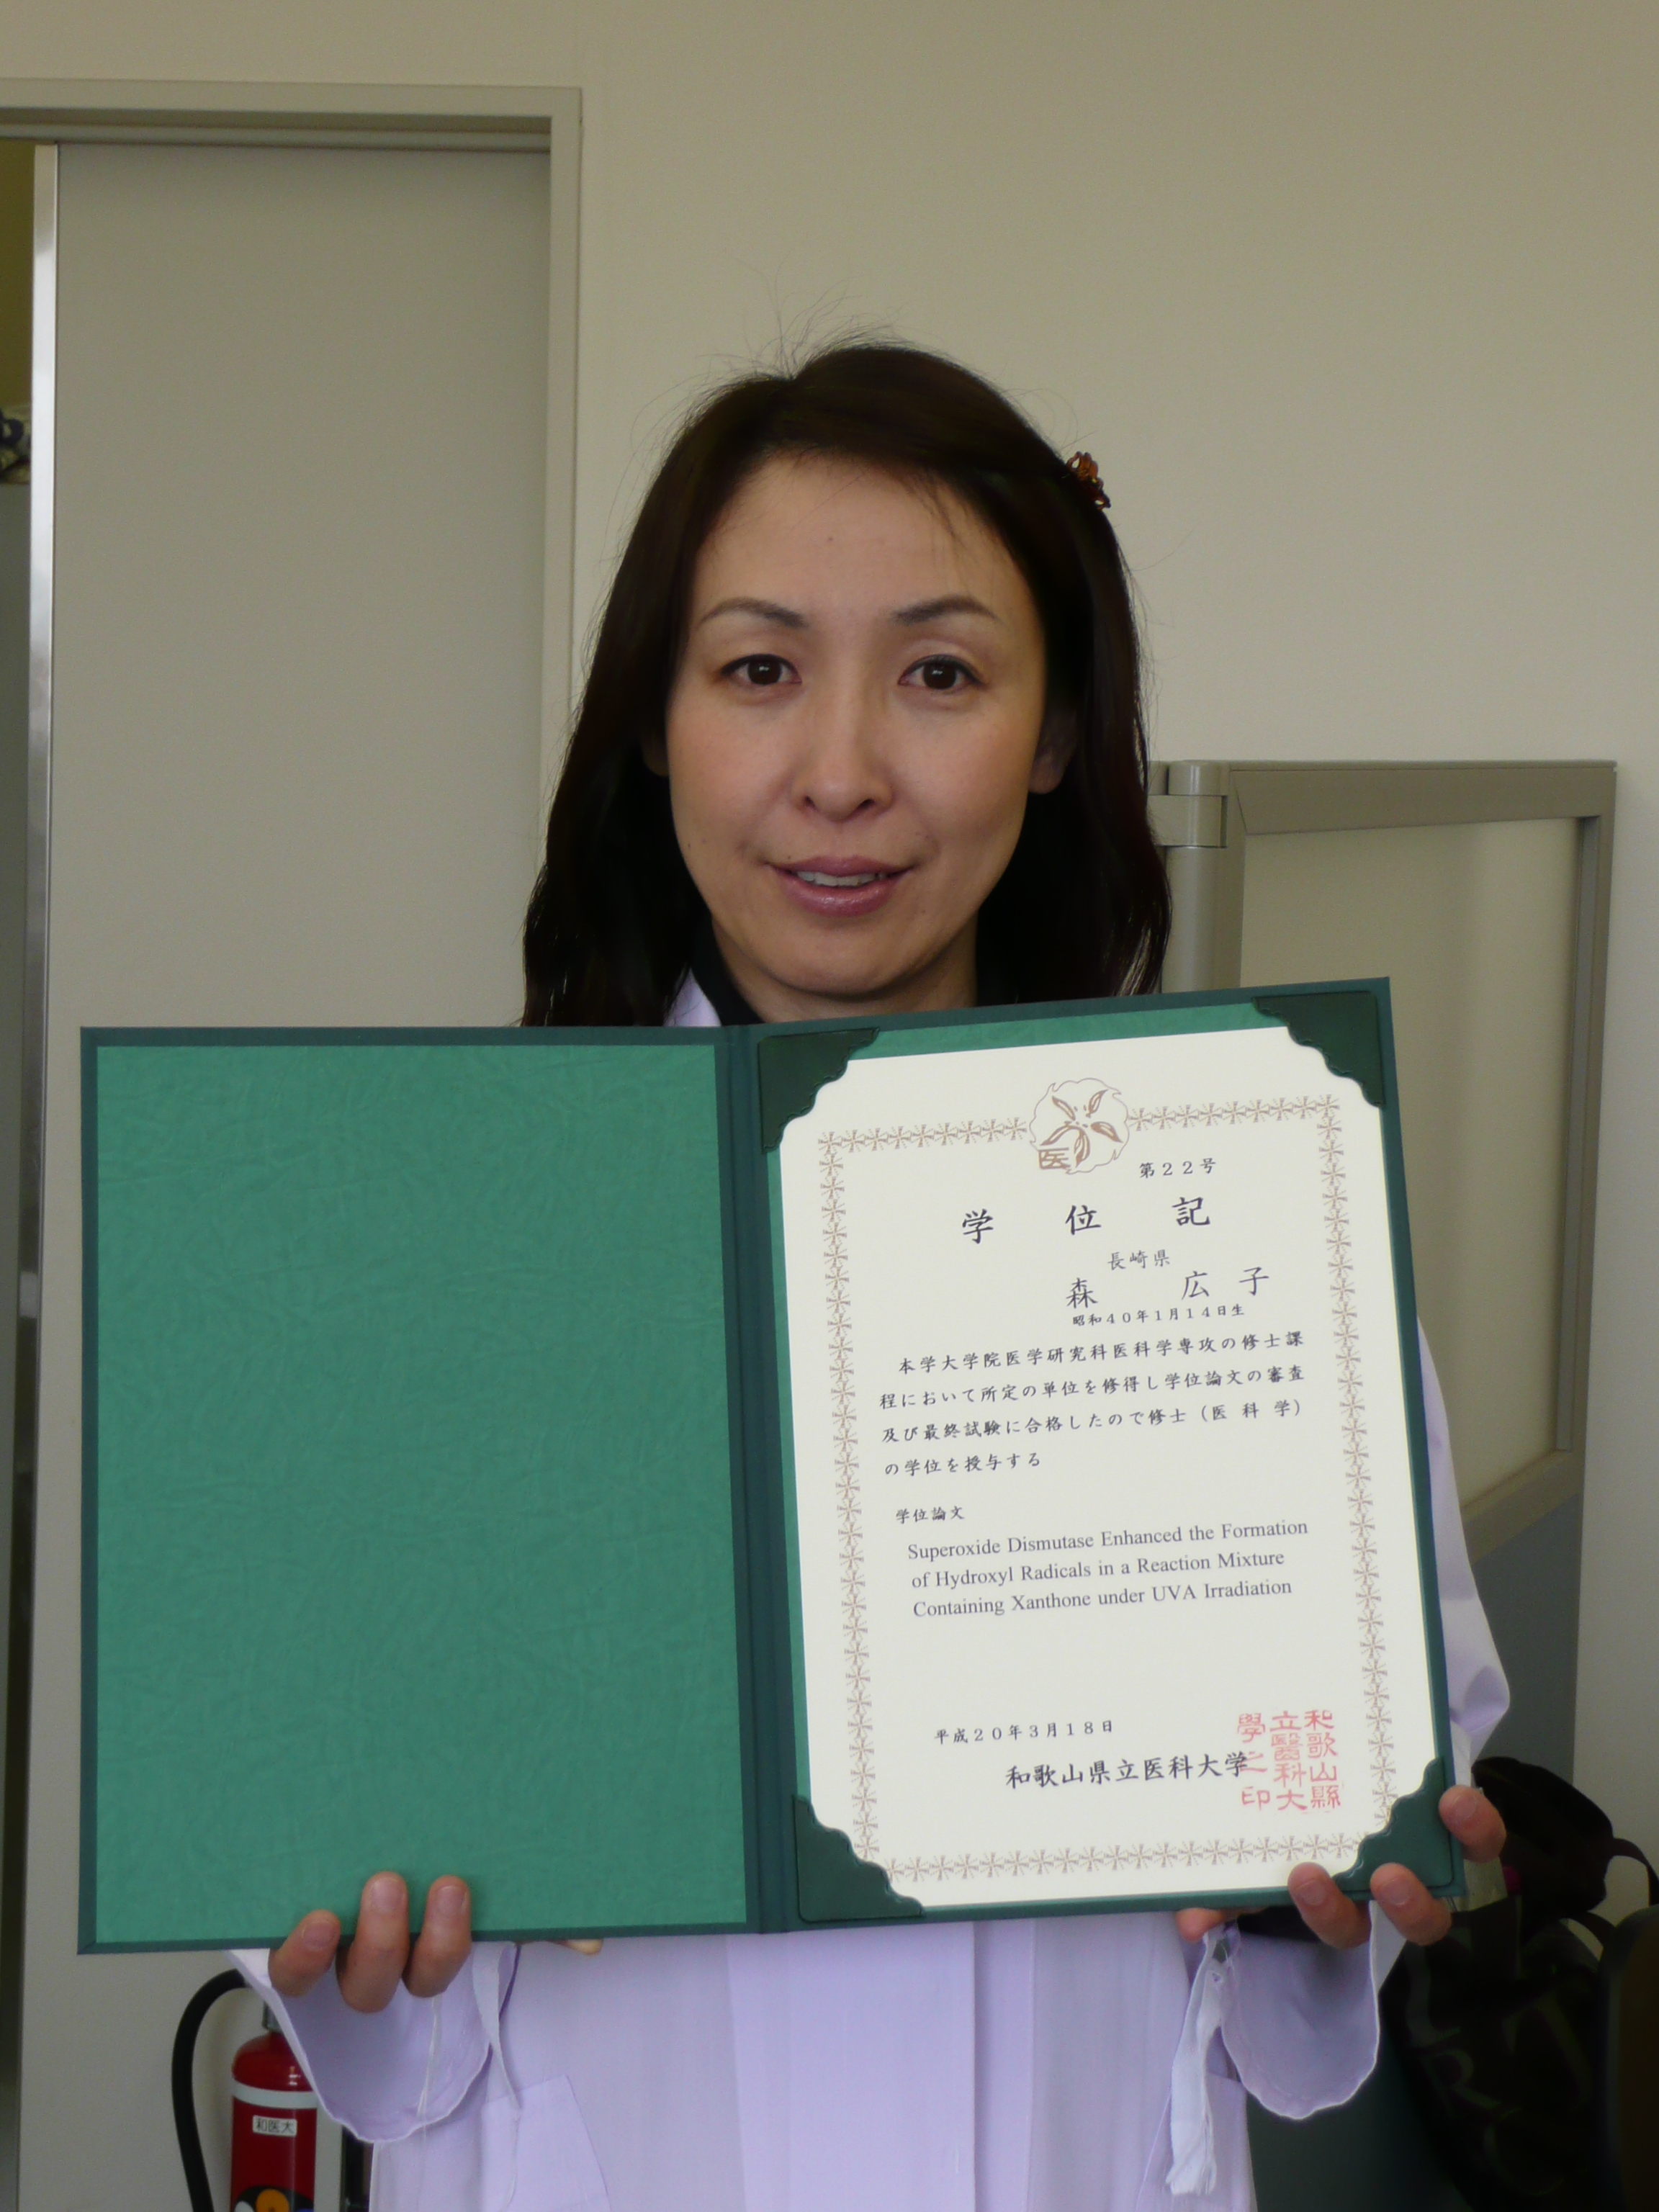 医
第22号
学位記
長崎県
森 広子
昭和40年1月14日生
本学大学院医学研究科医科学専攻の修士課
程において所定の単位を修得し学位論文の審査
及び最終試験に合格したので修士（医 科 学）
の学位を授与する
学位論文
Superoxide Dismutase Enhanced the Formation
of Hydroxyl Radicals in a Reaction Mixture
Containing Xanthone under UVA Irradiation
平成20年3月18日
和歌山県立医科大学
和歌山縣
立醫科大
學之印
和医大